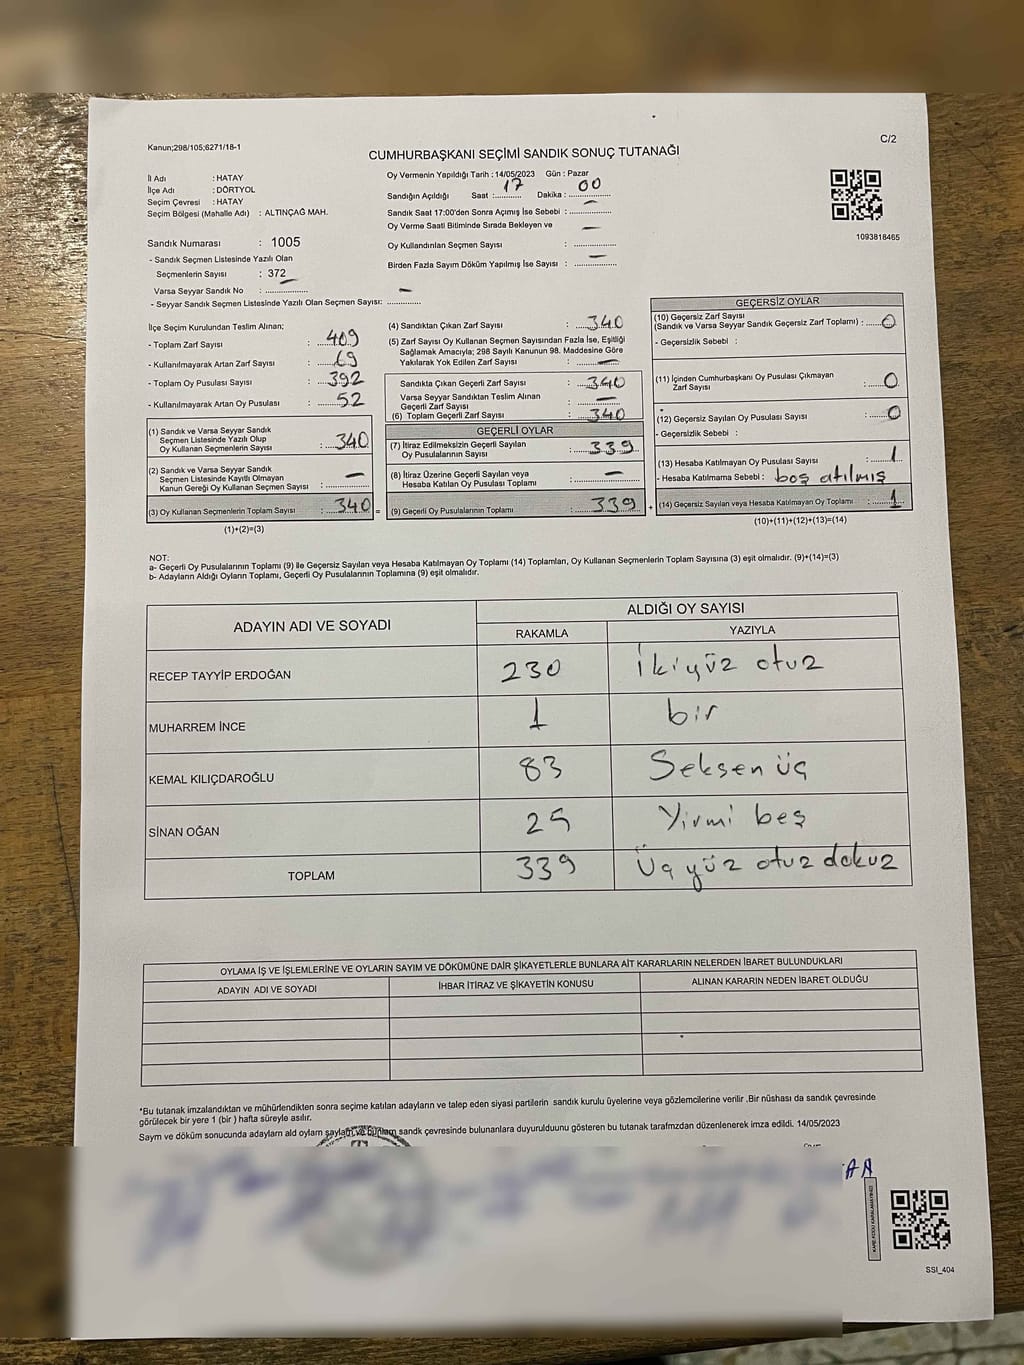 Kanun;298/105;6271/18-1
C/2
CUMHURBAŞKANI SEÇİMİ SANDIK SONUÇ TUTANAĞI
İl Adı : HATAY
İlçe Adı : DÖRTYOL
Seçim Çevresi : HATAY
Seçim Bölgesi (Mahalle Adı) : ALTINÇAĞ MAH.
Oy Vermenin Yapıldığı Tarih : 14/05/2023 Gün : Pazar
Sandığın Açıldığı Saat : 17 Dakika : 00
Sandık Saat 17:00'den Sonra Açımış İse Sebebi :
Oy Verme Saati Bitiminde Sırada Bekleyen ve
Oy Kullandırılan Seçmen Sayısı : —
Birden Fazla Sayım Döküm Yapılmış İse Sayısı : —
1093818465
Sandık Numarası : 1005
- Sandık Seçmen Listesinde Yazılı Olan
Seçmenlerin Sayısı : 372
Varsa Seyyar Sandık No : —
- Seyyar Sandık Seçmen Listesinde Yazılı Olan Seçmen Sayısı: —
İlçe Seçim Kurulundan Teslim Alınan;
- Toplam Zarf Sayısı : 409
- Kullanılmayarak Artan Zarf Sayısı : 69
- Toplam Oy Pusulası Sayısı : 392
- Kullanılmayarak Artan Oy Pusulası : 52
(1) Sandık ve Varsa Seyyar Sandık
Seçmen Listesinde Yazılı Olup
Oy Kullanan Seçmenlerin Sayısı : 340
(2) Sandık ve Varsa Seyyar Sandık
Seçmen Listesinde Kayıtlı Olmayan
Kanun Gereği Oy Kullanan Seçmen Sayısı : —
(3) Oy Kullanan Seçmenlerin Toplam Sayısı : 340 =
(1)+(2)=(3)
(4) Sandıktan Çıkan Zarf Sayısı : 340
(5) Zarf Sayısı Oy Kullanan Seçmen Sayısından Fazla İse, Eşitliği
Sağlamak Amacıyla; 298 Sayılı Kanunun 98. Maddesine Göre
Yakılarak Yok Edilen Zarf Sayısı : —
Sandıkta Çıkan Geçerli Zarf Sayısı : 340
Varsa Seyyar Sandıktan Teslim Alınan
Geçerli Zarf Sayısı : —
(6) Toplam Geçerli Zarf Sayısı : 340
GEÇERLİ OYLAR
(7) İtiraz Edilmeksizin Geçerli Sayılan
Oy Pusulalarının Sayısı : 339
(8) İtiraz Üzerine Geçerli Sayılan veya
Hesaba Katılan Oy Pusulası Toplamı : —
(9) Geçerli Oy Pusulalarının Toplamı : 339 +
GEÇERSİZ OYLAR
(10) Geçersiz Zarf Sayısı
(Sandık ve Varsa Seyyar Sandık Geçersiz Zarf Toplamı) : 0
- Geçersizlik Sebebi :
(11) İçinden Cumhurbaşkanı Oy Pusulası Çıkmayan
Zarf Sayısı : 0
(12) Geçersiz Sayılan Oy Pusulası Sayısı : 0
- Geçersizlik Sebebi :
(13) Hesaba Katılmayan Oy Pusulası Sayısı : 1
- Hesaba Katılmama Sebebi : boş atılmış
(14) Geçersiz Sayılan veya Hesaba Katılmayan Oy Toplamı : 1
(10)+(11)+(12)+(13)=(14)
NOT:
a- Geçerli Oy Pusulalarının Toplamı (9) ile Geçersiz Sayılan veya Hesaba Katılmayan Oy Toplamı (14) Toplamları, Oy Kullanan Seçmenlerin Toplam Sayısına (3) eşit olmalıdır. (9)+(14)=(3)
b- Adayların Aldığı Oyların Toplamı, Geçerli Oy Pusulalarının Toplamına (9) eşit olmalıdır.
ADAYIN ADI VE SOYADI
ALDIĞI OY SAYISI
RAKAMLA YAZIYLA
RECEP TAYYİP ERDOĞAN 230 İkiyüz otuz
MUHARREM İNCE 1 bir
KEMAL KILIÇDAROĞLU 83 Seksen üç
SİNAN OĞAN 25 Yirmi beş
TOPLAM 339 Üç yüz otuz dokuz
OYLAMA İŞ VE İŞLEMLERİNE VE OYLARIN SAYIM VE DÖKÜMÜNE DAİR ŞİKAYETLERLE BUNLARA AİT KARARLARIN NELERDEN İBARET BULUNDUKLARI
ADAYIN ADI VE SOYADI İHBAR İTİRAZ VE ŞİKAYETİN KONUSU ALINAN KARARIN NEDEN İBARET OLDUĞU
*Bu tutanak imzalandıktan ve mühürlendikten sonra seçime katılan adayların ve talep eden siyasi partilerin sandık kurulu üyelerine veya gözlemcilerine verilir .Bir nüshası da sandık çevresinde
görülecek bir yere 1 (bir ) hafta süreyle asılır.
Sayım ve döküm sonucunda adayların ald oyların sayları ve bunların sandk çevresinde bulunanlara duyurulduunu gösteren bu tutanak tarafmzdan düzenlenerek imza edildi. 14/05/2023
AA
KARE KODU KARALAMAYINIZ!
SSI_404